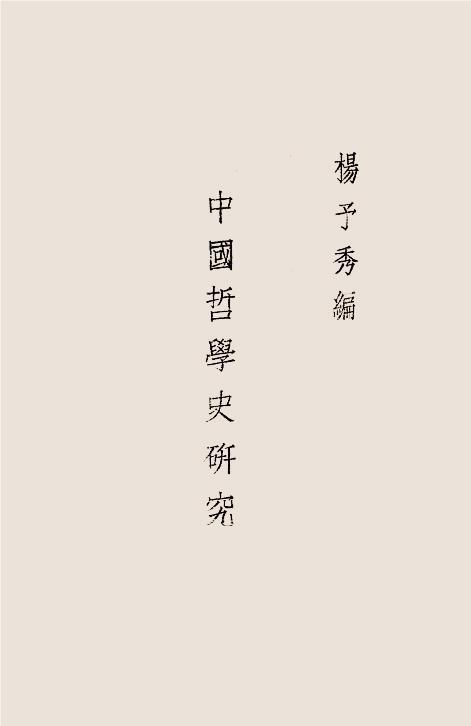 楊予秀編
中國哲學史硏究